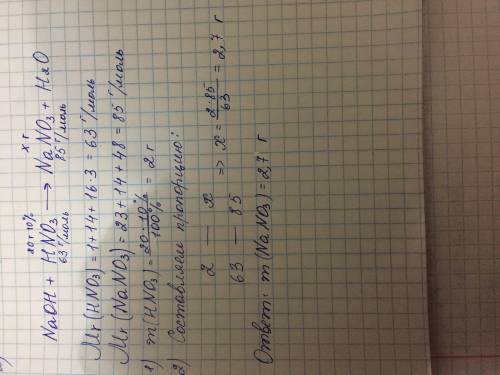 20г 10% х г
NaOH + HNO3 → NaNO3 + H2O
63 г/моль 85 г/моль
Mr (HNO3) = 1+14+16·3 = 63 г/моль
Mr (NaNO3) = 23+14+48 = 85 г/моль
1) m(HNO3) = 20·10% / 100% = 2 г
2) Составляем пропорцию:
2 — х
63 — 85 => x = 2·85 / 63 = 2,7 г
Ответ: m (NaNO3) = 2,7 г